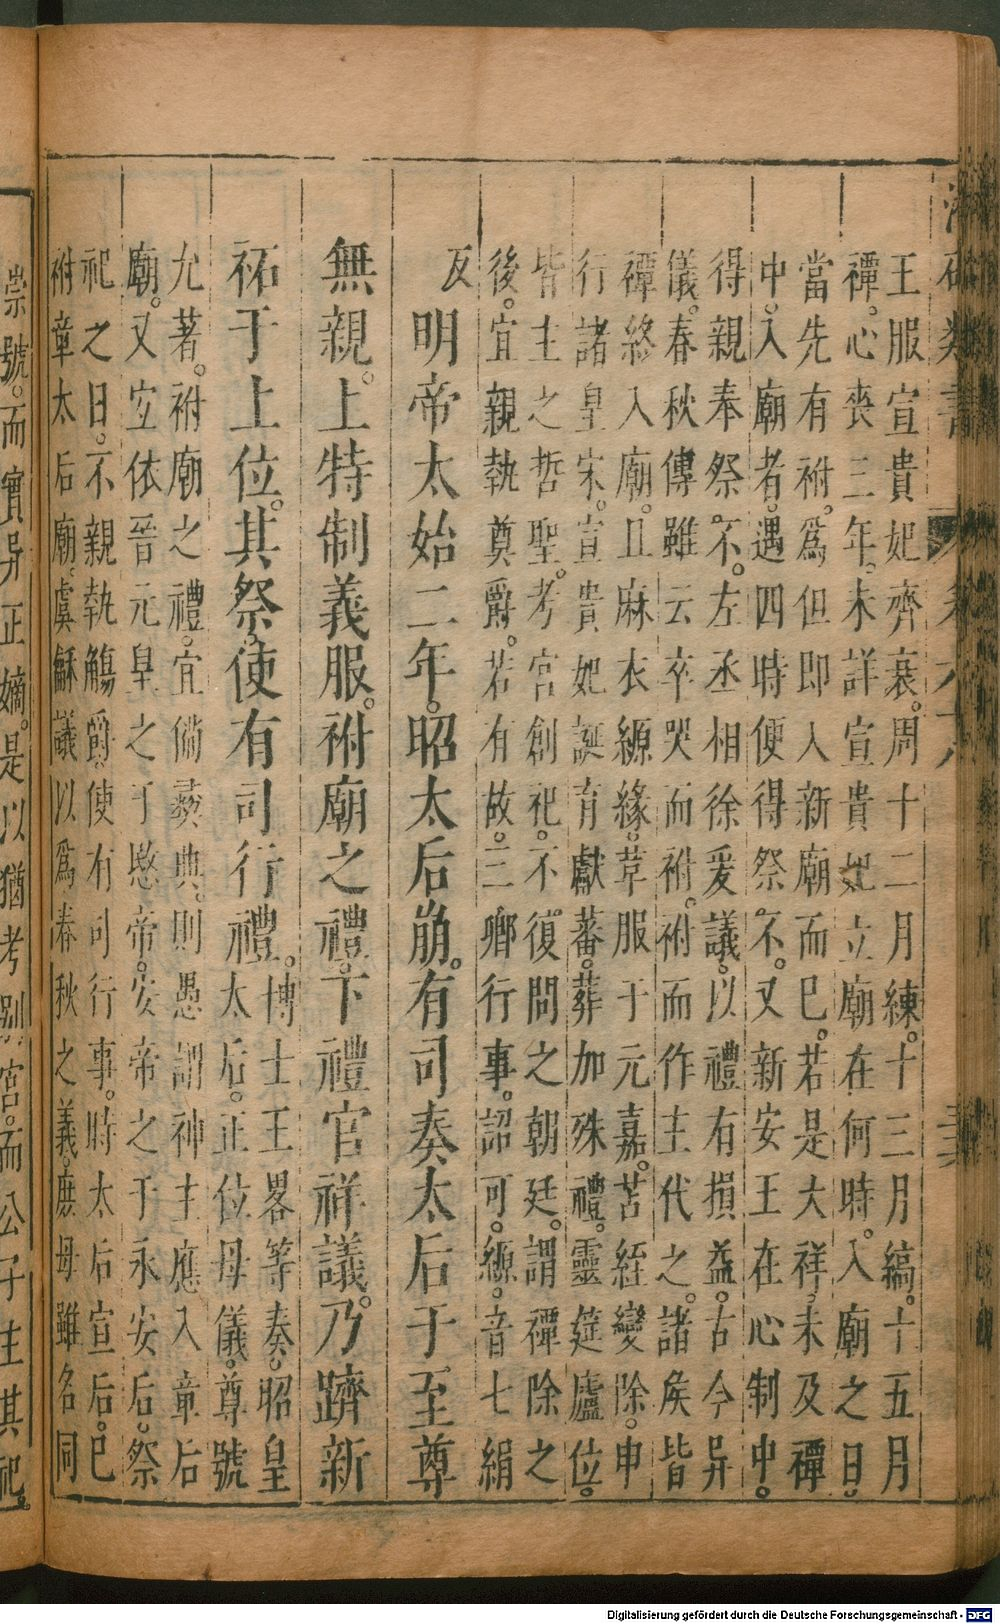 王服宣貴妃齊衰。周十二月練。十三月縞。十五月
禫。心喪三年。未詳宣貴妃立廟在何時。入廟之日。
當先有祔。爲但即入新廟而已。若是大祥未及禫
中。入廟者。遇四時便得祭不。又新安王在心制中。
得親奉祭不。左丞相徐爰議。以禮有損益。古今异
儀。春秋傳雖云卒哭而祔。祔而作主代之。諸矦皆
禫終入廟。且麻衣縓緣。草服于元嘉。苫絰變除。申
行諸皇宋。宣貴妃誕育獻蕃。葬加殊禮。靈筵廬位。
皆主之哲聖。考宮創祀。不復問之朝廷。謂禫除之
後。宜親執奠爵。若有故。三卿行事。詔可。縓。音七絹
反
明帝太始二年。昭太后崩。有司奏太后于至尊
無親。上特制義服。祔廟之禮。下禮官祥議。乃躋新
祏于上位。其祭。使有司行禮。博士王畧等奏。昭皇
太后。正位母儀。尊號
允著。祔廟之禮。宜備彜典。則愚謂神主應入章后
廟。又宜依晉元皇之于愍帝。安帝之于永安后。祭
祀之日。不親執觴爵。使有司行事。時太后宣后。已
祔章太后廟。虞龢議以爲春秋之義。庶母雖名同
崇號。而實异正嫡。是以猶考別宮。而公子主其祀。
Digitalisierung gefördert durch die Deutsche Forschungsgemeinschaft - DFG